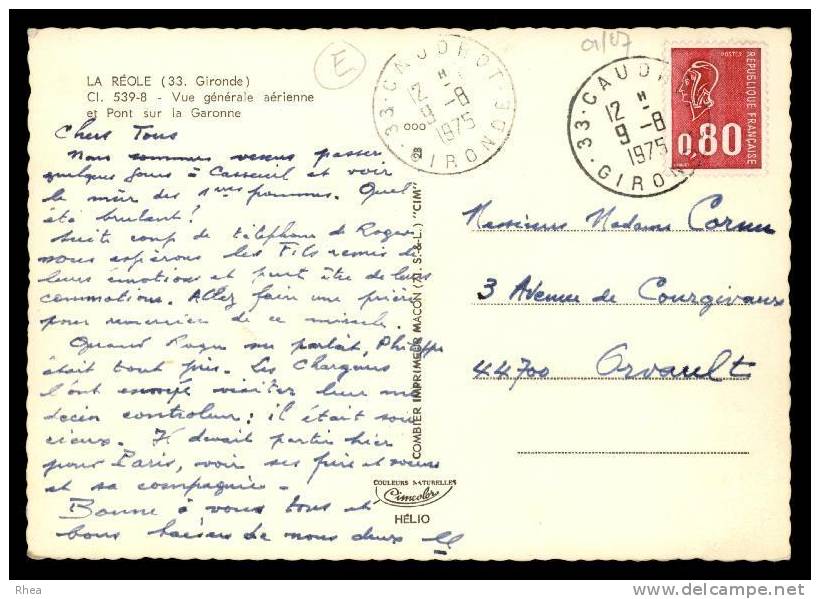 LA RÉOLE (33. Gironde)
Cl. 539-8 - Vue générale aérienne
et Pont sur la Garonne
E
33 - CAUDROT - GIRONDE
12 H
9 - 8
1975
000
2B
33 - CAUDROT - GIRONDE
12 H
9 - 8
1975
POSTES
RÉPUBLIQUE FRANÇAISE
0,80
Chers Tous
Nous sommes venus passer
quelques jours à Casseuil et voir
le mûr des 1ères pommes. Quel
été brulant!
Suite coup de téléphone de Roger
nous espérons les Fils remis de
leurs émotions et peut être de leurs
commotions. Allez faire une prière
pour remercier de ce miracle.
Quand Roger me parlait, Philippe
était tout près. Les Chargeurs
l'ont envoyé visiter leur mé
decin controleur: il était sou
cieux. Il devait partir hier
pour Paris, voir ses frère et soeurs
et sa compagnie.
Bonne à vous tous et
bons baisers de nous deux
COMBIER IMPRIMEUR MACON (M. S.-&-L.) "CIM"
COULEURS NATURELLES
Cimcolor
HÉLIO
Messieurs Madame Cornu
3 Avenue de Courgivaux
44700 Orvault
Rhea
www.delcampe.net